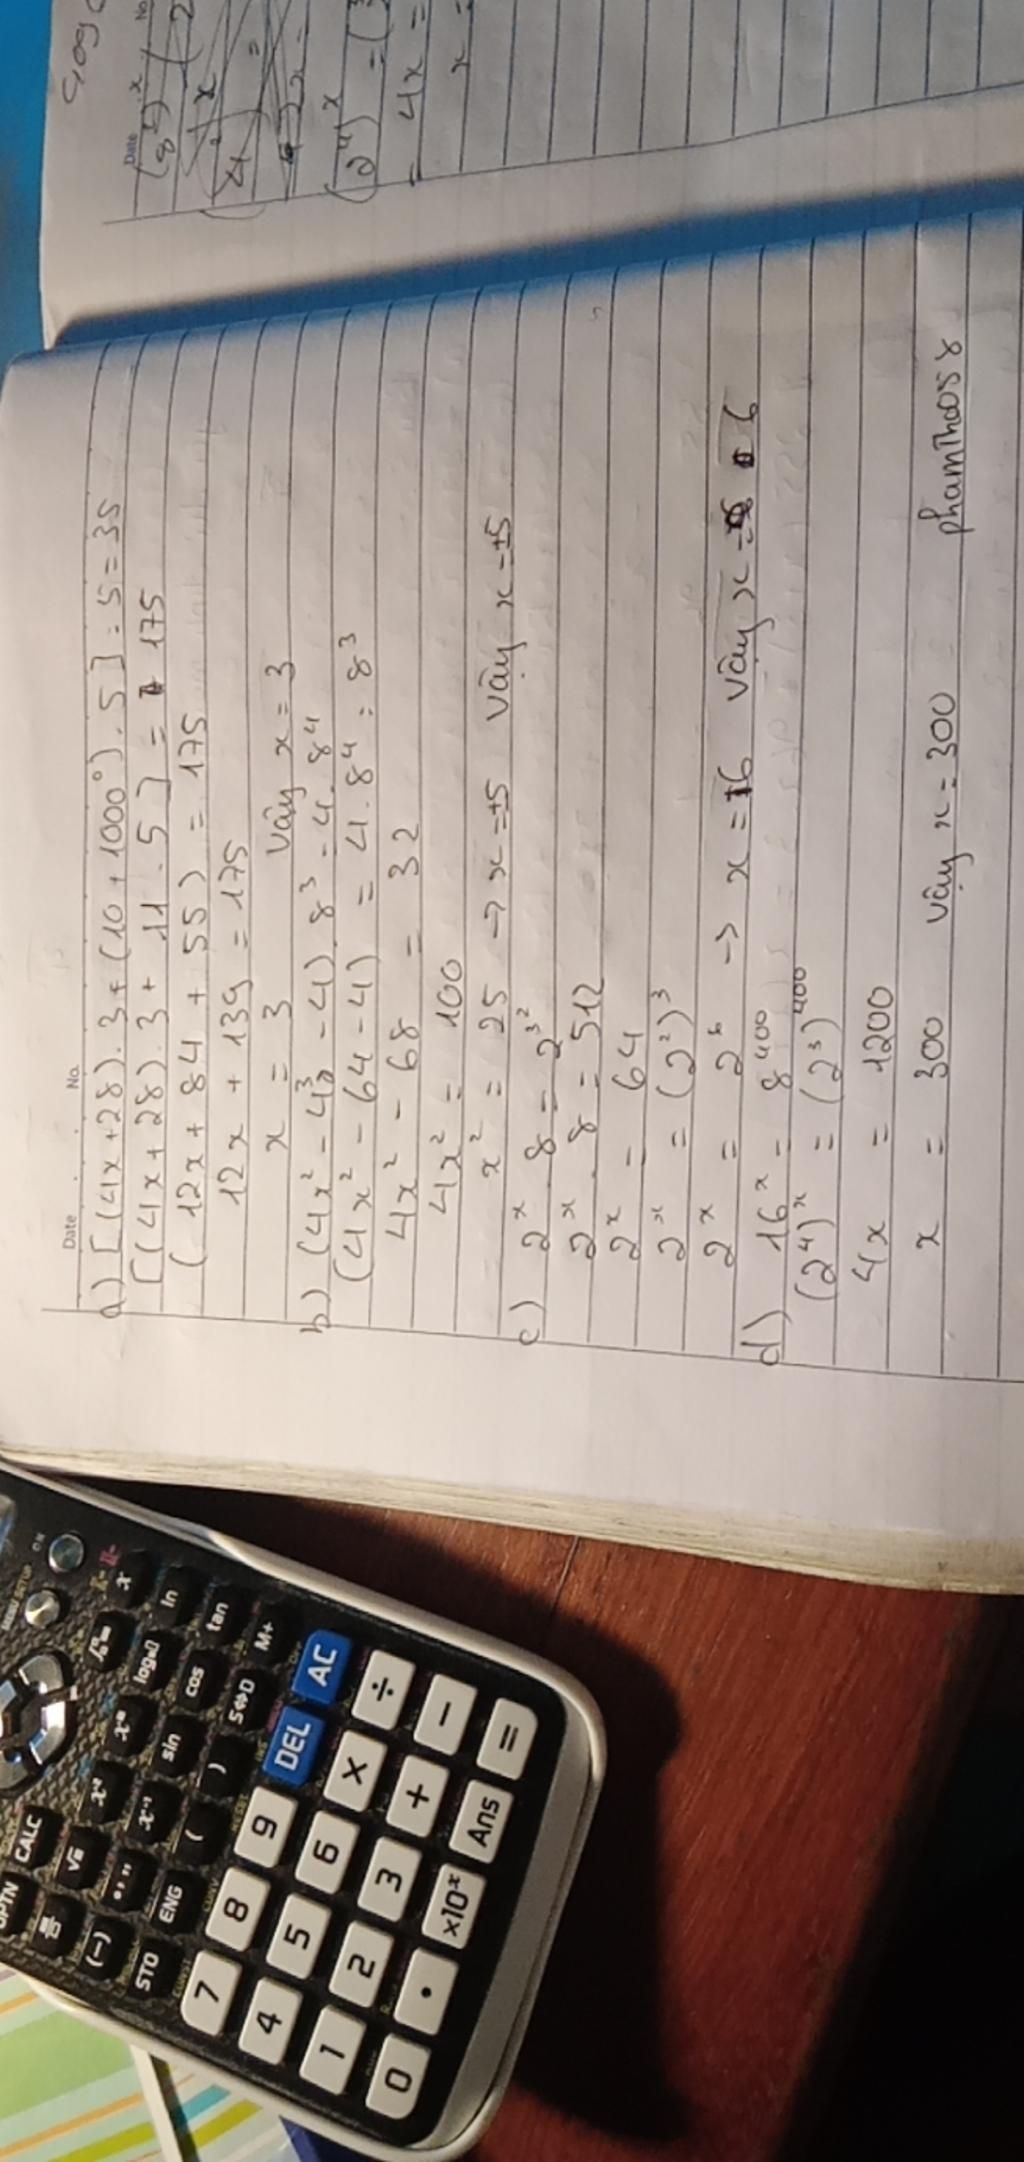 Date No.
a) [(4x+28).3+(10+1000⁰).5]:5=35
[(4x+28).3+11.5]=175
(12x+84+55)=175
12x+139=175
x=3 Vậy x=3
b) (4x²-4³-4).8³=4.8⁴
(4x²-64-4)=4.8⁴:8³
4x²-68=32
4x²=100
x²=25→x=±5 Vậy x=±5
c) 2ˣ.8=2^3^2
2ˣ.8=512
2ˣ=64
2ˣ=(2²)³
2ˣ=2⁶→x=6 Vậy x=6
d) 16ˣ=8⁴⁰⁰
(2⁴)ˣ=(2³)⁴⁰⁰
4x=1200
x=300 Vậy x=300
Date No
(2⁴)ˣ
4x=
x=
MENU SETUP ON
OPTN CALC
√ x² x
(-) x⁻¹ sin cos tan ln
STO ENG ( ) S⇔D M+
7 8 9 DEL AC
4 5 6 × ÷
1 2 3 + −
0 . ×10ˣ Ans =